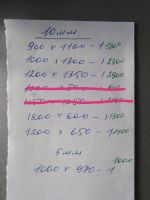 10мм
900 x 1100 - 1 1200
1000 x 1300 - 1 2300
1200 x 1350 - 1 2900
1200 x 600 - 1 1300
1200 x 650 - 1 1400
5мм
1000 x 970 - 1 1000